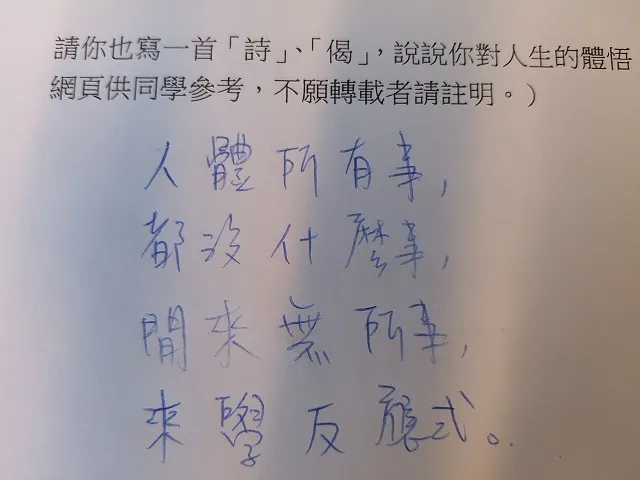 請你也寫一首「詩」、「偈」，說說你對人生的體悟
網頁供同學參考，不願轉載者請註明。）
人體所有事，
都沒什麼事，
閒來無所事，
來學反應式。